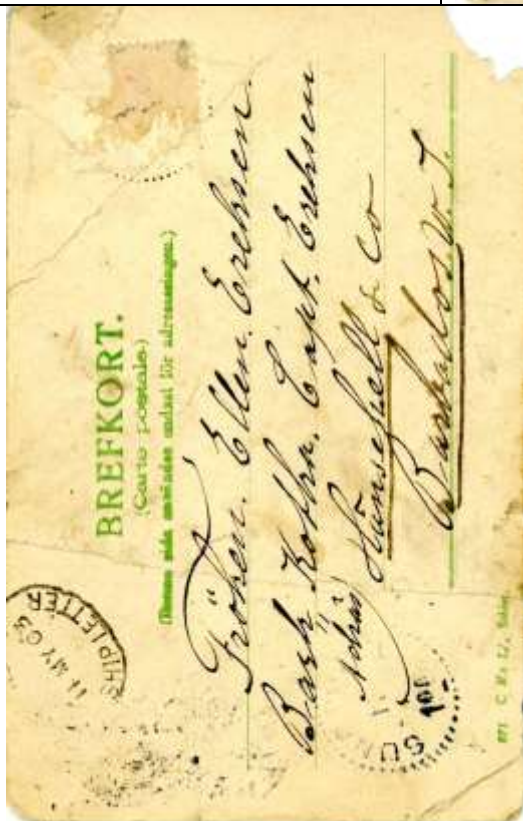 BREFKORT.
(Carte postale)
(Denna sida användes endast för adresseringen.)
Fröken. Ellen. Erehsen.
Bark Kothn. Capt. Erehsen
Hunsehell & co
Barbados W. I.
SHIPLETTER
11 MY 03
SU